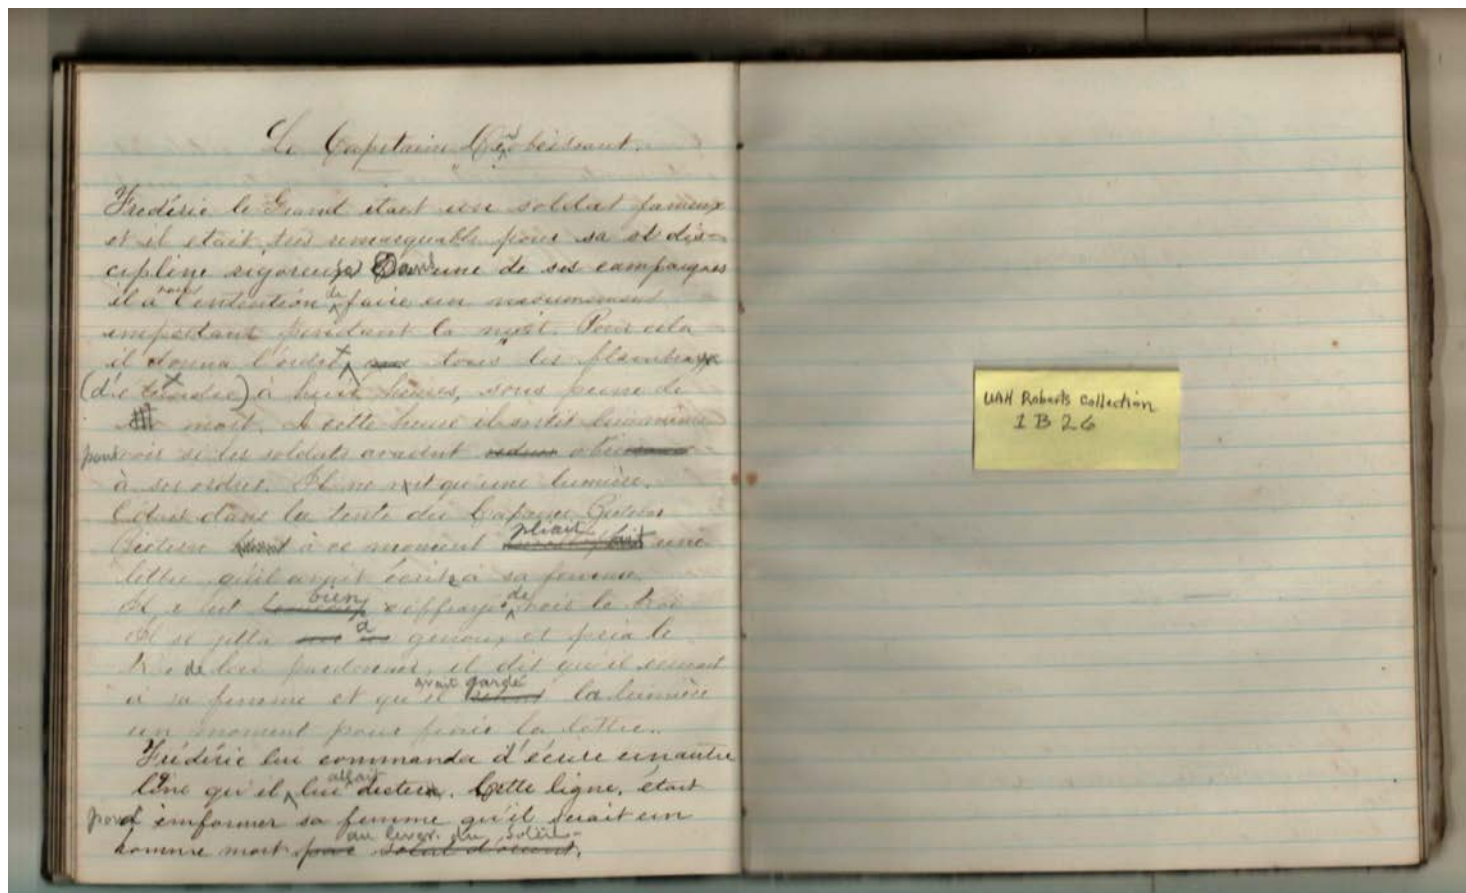 Le Capitaine Désobéissant.
Frédéric le Grand était un soldat fameux
et il etait très remarquable pour sa st dis-
cipline rigoureuse Dans une de ses campaignes
il a vait l'intention de faire un mouvement
important pendant la nuit. Pour cela
il donna l'ordre que tous les flambeaux
(d'éteindre) à huit heures, sous peine de
mort. A cette heure il sortit lui même
pour voir si les soldats avaient obéi
à ses ordres. Il ne vit qu'une lumière.
C'était dans la tente du
à ce moment pliait une
lettre qu'il avait écrite à sa femme.
Il bien effrayé de voir le roi
Il se jetta à genoux et pria le
de lui pardonner, il dit qu'il
à sa femme et qu'il avait gardé la lumière
un moment pour finir la lettre.
Frédéric lui commanda d'écrire un autre
line qu'il lui allait dicter. Cette ligne, était
pour imformer sa femme qu'il serait un
homme mort par soleil d'orient. au lever du soleil-
UAH Roberts Collection
1 B 26